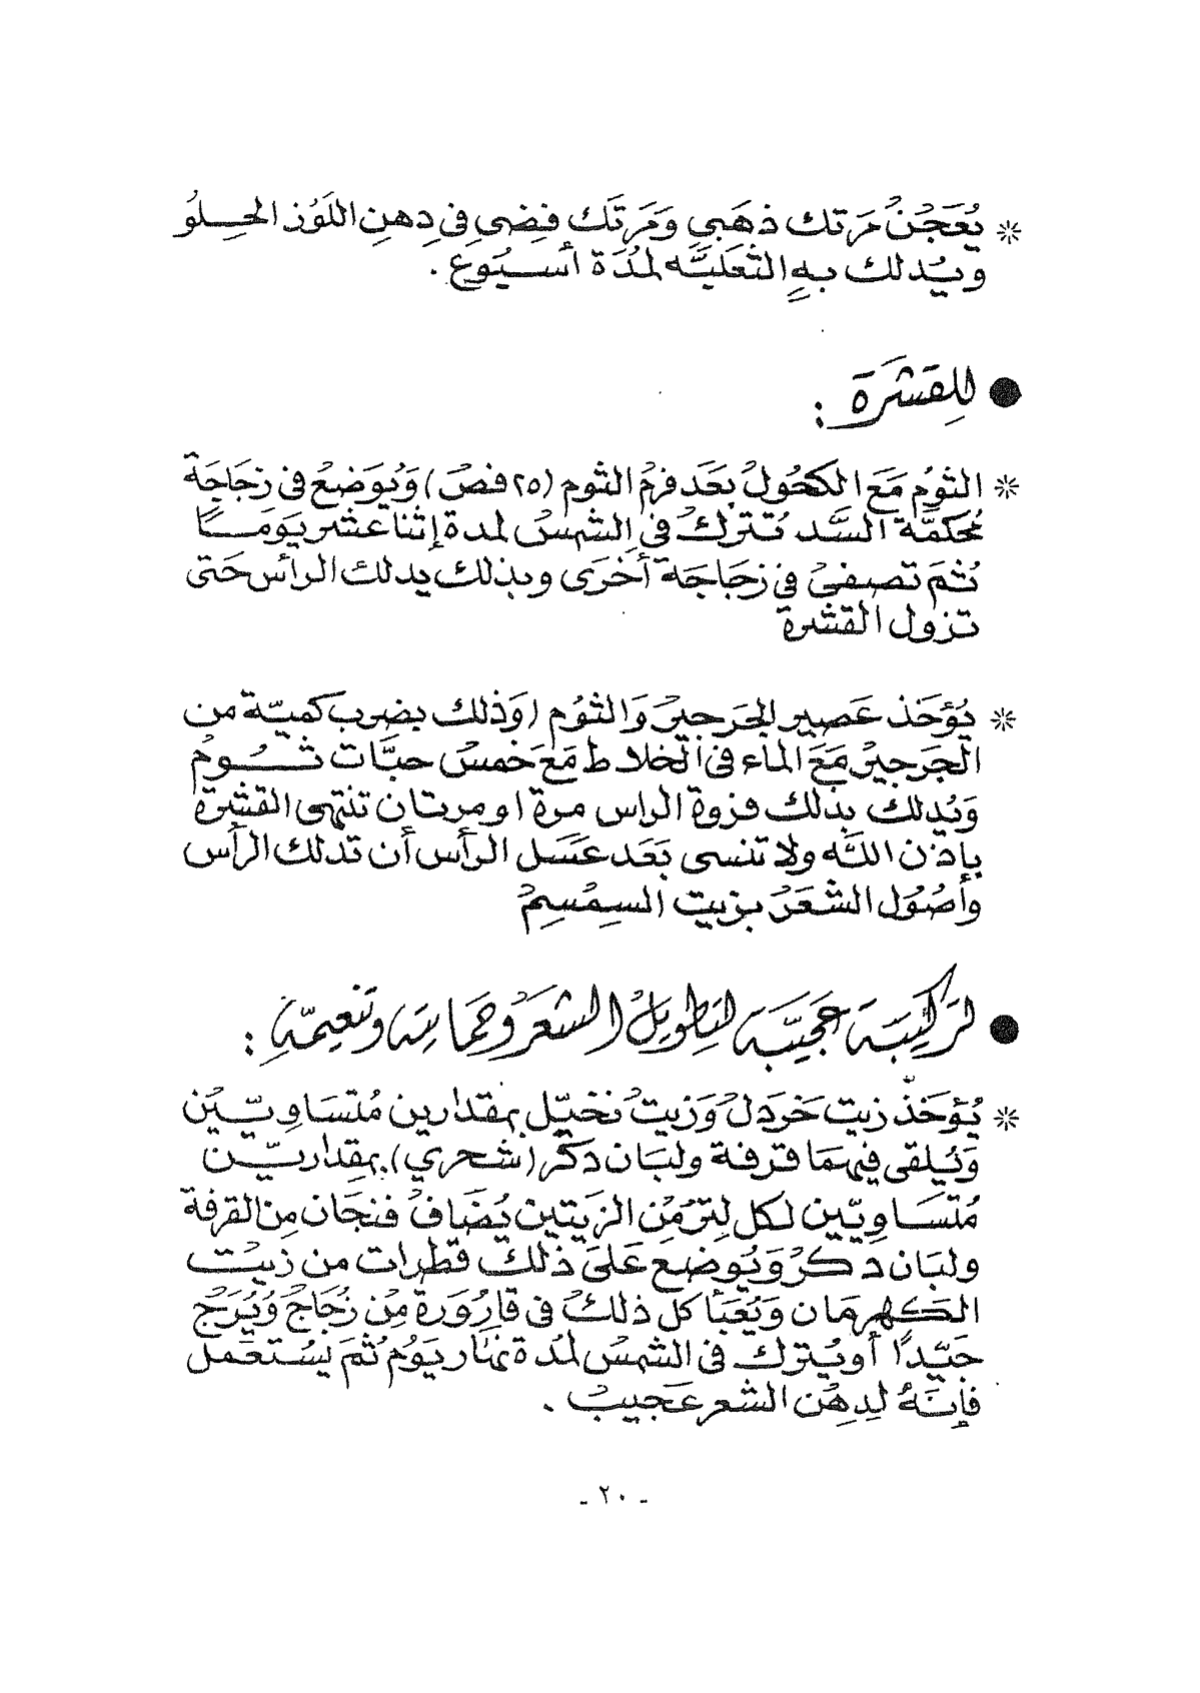 * يُعَجَنُ مَرَتك ذهَبي وَمَرتَك فِضي في دِهنِ اللَوُز الحِلوُ
ويُدلك بهِ الثعَلبَّه لمُدَة أسبُوع .
● لِلقشَرَة :
* الثوُم مَعَ الكحُولُ بَعَد فرمُ الثوم (٢٥ فصُ) وَيُوَضعُ في زجَاجَة
مُحكمَّة السَّد تُتركُ في الشمسُ لمدة إثنا عشر يَومَا
ثُمَ تصفىُ في زجَاجَة أخرَى وبذلك يدلك الرأس حَتى
تزول القشرة
* يُؤخَذ عَصِير الجَرجيرُ وَالثوُم (وَذلك بضرب كميّة من
الجَرجيرُ مَعَ الماء في الخلاط مَعَ خَمسُ حبَّات ثُومُ
وَيُدلك بذلك فروة الراس مرة او مرتان تنتهى القشرة
بإذن اللَّه ولا تنسى بَعَد غَسَل الرأس أن تدلك الرأس
وأصُوُل الشعَرُ بزيت السِمُسِمُ
● تركيبَة عَجيّبَة لتطويلُ الشعَرُ وحمَايتَه وتنعيمّهِ :
* يُؤخَذّ زيت خَردَلُ وَزيتُ نخيّل بمقدارين مُتسَاوِيّيُن
وَيُلقى فيهمَا قرفة ولبَان دكر (شحري) بمقِداريّن
مُتسَاوِيّين لكل لِترُ مُن الزيتين يُضَافُ فنجَان مِن القرفة
ولبَان دكرُ وَيُوضع عَلىَ ذلك قطرات من زيُت
الكهرمَان وَيُعَبَأ كل ذلكُ في قارُورَة مِنُ زُجَاجُ وَيُرَجُ
جَيّدًا أو يُترك في الشمسُ لمدُة نهَار يَوُم ثُمَ يَستعَمل
فإنَهُ لدِهُن الشعر عَجيبُ .
- ٢٠ -